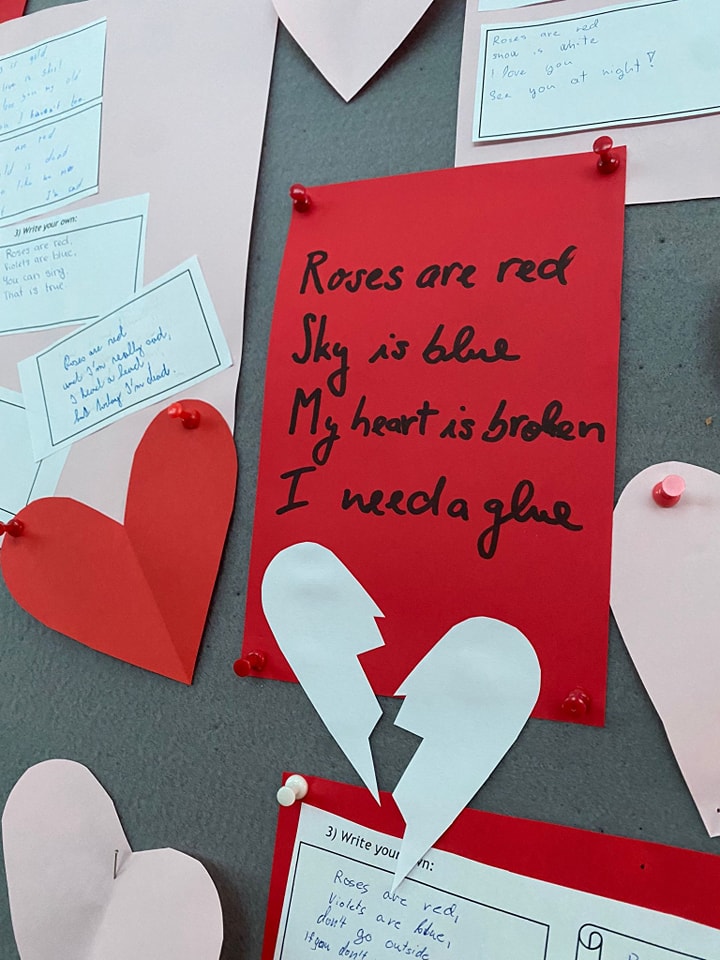 is gold
Roses are red
snow is white
I love you
See you at night!
are red
is dead
3) Write your own:
Roses are red,
Violets are blue,
You can sing,
That is true.
Roses are red
and I'm really sad,
I had a
but today I'm dead.
Roses are red
Sky is blue
My heart is broken
I need a glue
3) Write your own:
Roses are red,
Violets are blue,
don't go outside
if you don't